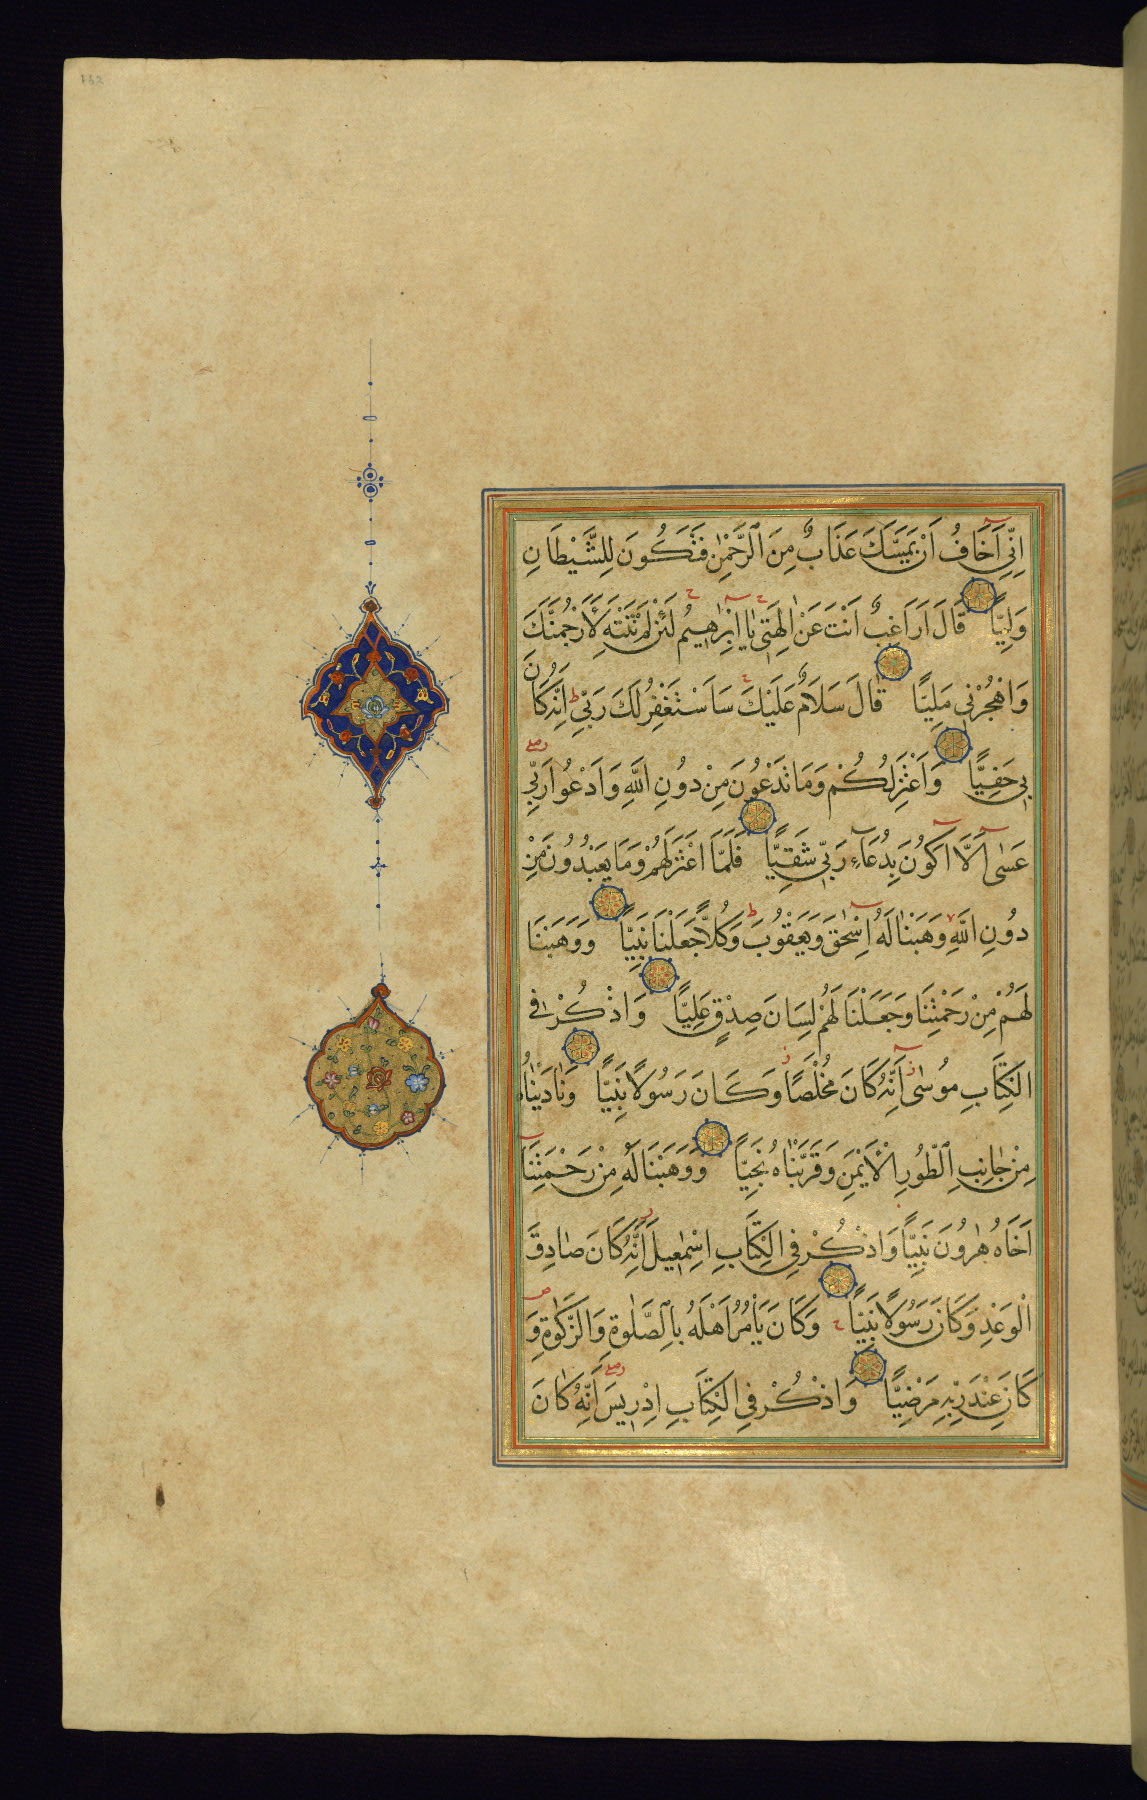 اِنِّي اَخَافُ اَنْ يَمَسَّكَ عَذَابٌ مِنَ الرَّحْمٰنِ فَتَكُونَ لِلشَّيْطَانِ
وَلِيًّا قَالَ اَرَاغِبٌ اَنْتَ عَنْ اٰلِهَتِي يَا اِبْرٰهِيمُ لَئِنْ لَمْ تَنْتَهِ لَاَرْجُمَنَّكَ
وَاهْجُرْنِي مَلِيًّا قَالَ سَلَامٌ عَلَيْكَ سَاَسْتَغْفِرُ لَكَ رَبِّي اِنَّهُ كَانَ
بِي حَفِيًّا وَاَعْتَزِلُكُمْ وَمَا تَدْعُونَ مِنْ دُونِ اللّٰهِ وَاَدْعُوا رَبِّي
عَسٰى اَلَّا اَكُونَ بِدُعَاءِ رَبِّي شَقِيًّا فَلَمَّا اعْتَزَلَهُمْ وَمَا يَعْبُدُونَ مِنْ
دُونِ اللّٰهِ وَهَبْنَا لَهُ اِسْحٰقَ وَيَعْقُوبَ وَكُلًّا جَعَلْنَا نَبِيًّا وَوَهَبْنَا
لَهُمْ مِنْ رَحْمَتِنَا وَجَعَلْنَا لَهُمْ لِسَانَ صِدْقٍ عَلِيًّا وَاذْكُرْ فِي
الْكِتَابِ مُوسٰى اِنَّهُ كَانَ مُخْلَصًا وَكَانَ رَسُولًا نَبِيًّا وَنَادَيْنَاهُ
مِنْ جَانِبِ الطُّورِ الْاَيْمَنِ وَقَرَّبْنَاهُ نَجِيًّا وَوَهَبْنَا لَهُ مِنْ رَحْمَتِنَا
اَخَاهُ هٰرُونَ نَبِيًّا وَاذْكُرْ فِي الْكِتَابِ اِسْمٰعِيلَ اِنَّهُ كَانَ صَادِقَ
الْوَعْدِ وَكَانَ رَسُولًا نَبِيًّا وَكَانَ يَاْمُرُ اَهْلَهُ بِالصَّلٰوةِ وَالزَّكٰوةِ وَ
كَانَ عِنْدَ رَبِّهِ مَرْضِيًّا وَاذْكُرْ فِي الْكِتَابِ اِدْرِيسَ اِنَّهُ كَانَ